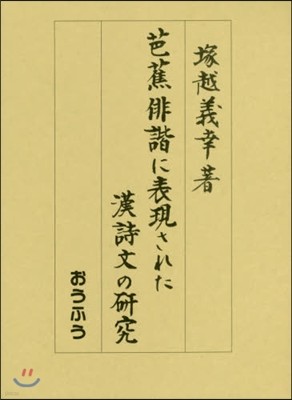 塚越義幸著
芭蕉俳諧に表現された
漢詩文の研究
おうふう